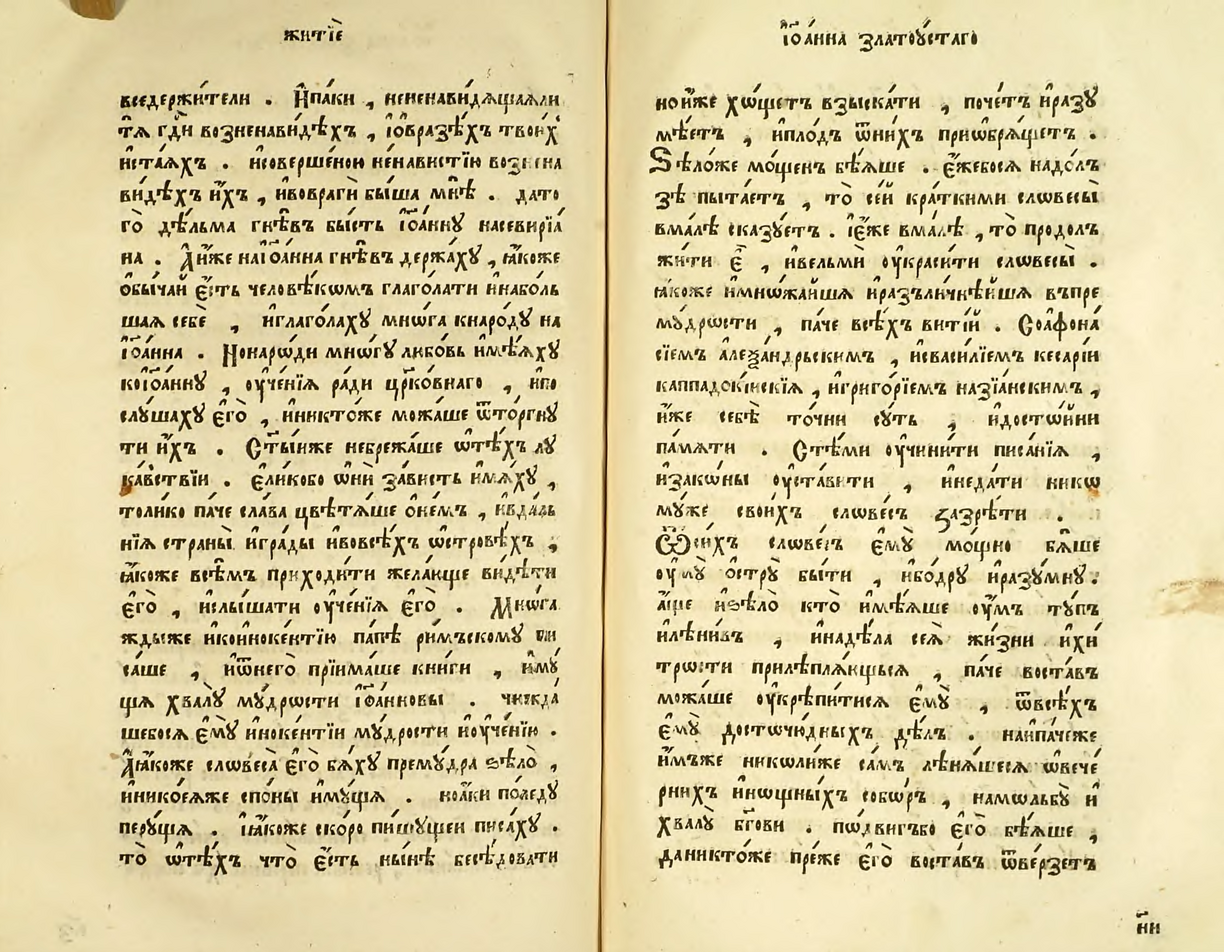 житїѐ
вседержители . И҆паки , нененавидѧщаѧли
тѧ̀ гд҇и возненави́дѣхъ , їѻ҆вразѣ́хъ твои́х
иста́ѧхъ . исоверше́ною не́навистїю возʼнена
ви́дѣхъ и҆́хъ , ивовраги̑ бы́ша мнѣ̀ . дато
го̀ дѣ́льма гнѣ́въ бы́сть їѡа́ннꙋ насевирїа́
на . А҆и́же наїѡа́нна гнѣ́въ держа́хꙋ , ꙗ҆́коже
ѻбы́чай є҆́сть человѣ́кѡмъ глаго́лати инаболь
шаѧ себѐ , иглаго́лахꙋ мно́га кнаро́дꙋ на
їѡа́нна . Нонаро́ди мно́гꙋ любо́вь имѣ́ѧхꙋ
коїѡа́ннꙋ , оу҆че́нїѧ ра́ди цр҃ко́внаго , ипо
слꙋ́шахꙋ є҆го̀ , иникто́же можа́ше ѿто́ргнꙋ
ти и҆́хъ . Ст҃ы́иже небрежа́ше ѡтѣ́хъ лꙋ
ка́вствїи . є҆ли́кобо ѡни̑ за́висть имѧ́хꙋ ,
толи́ко па́че сла́ва цвѣтѧ́ше ѻне́мъ , ивда́ль
нїѧ страны̀ игра́ды ивовсѣ́хъ ѡ҆стровѣ́хъ ,
ꙗ҆́коже всѣ́мъ приходи́ти жела́юще ви́дѣти
є҆го̀ , ислы́шати оу҆че́нїѧ є҆го̀ . Мно́га
жды́же икоиноке́нтїю па́пѣ ри́мъскомꙋ пи
са́ше , иѿнего̀ прїима́ше кни́ги , и҆мꙋ́
щѧ хвалꙋ̀ мꙋ́дрости їѡа́нновы . чюжда́
шебосѧ є҆мꙋ̀ иноке́нтїи мꙋ́дрости иоу҆че́нїю .
Ꙗ҆́коже словеса̀ є҆го̀ бѧ́хꙋ премꙋ́дра ѕѣло̀ ,
иникоеѧ́же спо́ны имꙋ́щѧ .
перꙋ́щїѧ . їꙗ҆́коже ско́ро пи́шꙋщеи писа́хꙋ .
то̀ ѡтѣ́хъ что̀ є҆́сть ны́нѣ бесѣ́довати
їѡа́нна златоꙋ́стаго
нои҆́же хо́щетъ взыска́ти , поче́тъ иразꙋ
мѣ́етъ , ипло́дъ ѿни́хъ приѡбрѧ́щетъ .
Ѕѣло́же мо́щенъ бѣ́ѧше . є҆́жебосѧ надо́лъ
зѣ̀ пыта́етъ , то̀ се́й кра́ткими словесы̀
вма́лѣ ска́зꙋетъ . їє҆́же вма́лѣ , то̀ продо́лъ
жити є҆̀ , ивельмѝ оу҆краси́ти словесы̀ .
ꙗ҆́коже имно́жайшѧ иразъли́чнѣйшѧ въпре
мꙋ́дрости , па́че всѣ́хъ вити́й . Соафона́
сїемъ алеѯа́ндрьскимъ , исваси́лїемъ кесарі́и
каппадокі́искїѧ , игриго́рїемъ назїа́нскимъ ,
и҆́же себѣ̀ то́чни сꙋ́ть , идосто́йни
па́мѧти . Стѣ́ми оу҆чини́ти писа́нїѧ ,
изако́ны оу҆ста́вити , инеда́ти нико
мꙋ́же свои́хъ слове́съ зазрѣ́ти .
Ѿси́хъ слове́съ є҆мꙋ̀ мо́щно бѧ́ше
оу҆мꙋ̀ о́стрꙋ бы́ти , ибо́дрꙋ иразꙋ́мнꙋ .
а҆́ще иѕѣло̀ кто̀ имѣ́ѧше оу҆́мъ тꙋ́пъ
илѣни́въ , инадѣ́ла сеѧ̀ жи́зни ихи́
трости прилѣплѧ́ющьсѧ , па́че воста́въ
можа́ше оу҆крѣпи́тисѧ є҆мꙋ̀ , ѿвсѣ́хъ
є҆мꙋ̀ досточю́дныхъ дѣ́лъ . наипаче́же
и҆́мъже нико́лиже са́мъ лѣнѧ́шесѧ ѡвече́
рнихъ инощны́хъ собо́ръ , намольбꙋ̀ и
хвалꙋ̀ бг҃ови . по́двигъбо є҆го̀ бѣ́ѧше ,
даникто́же пре́же є҆го̀ воста́въ ѿве́рзетъ
н҃и